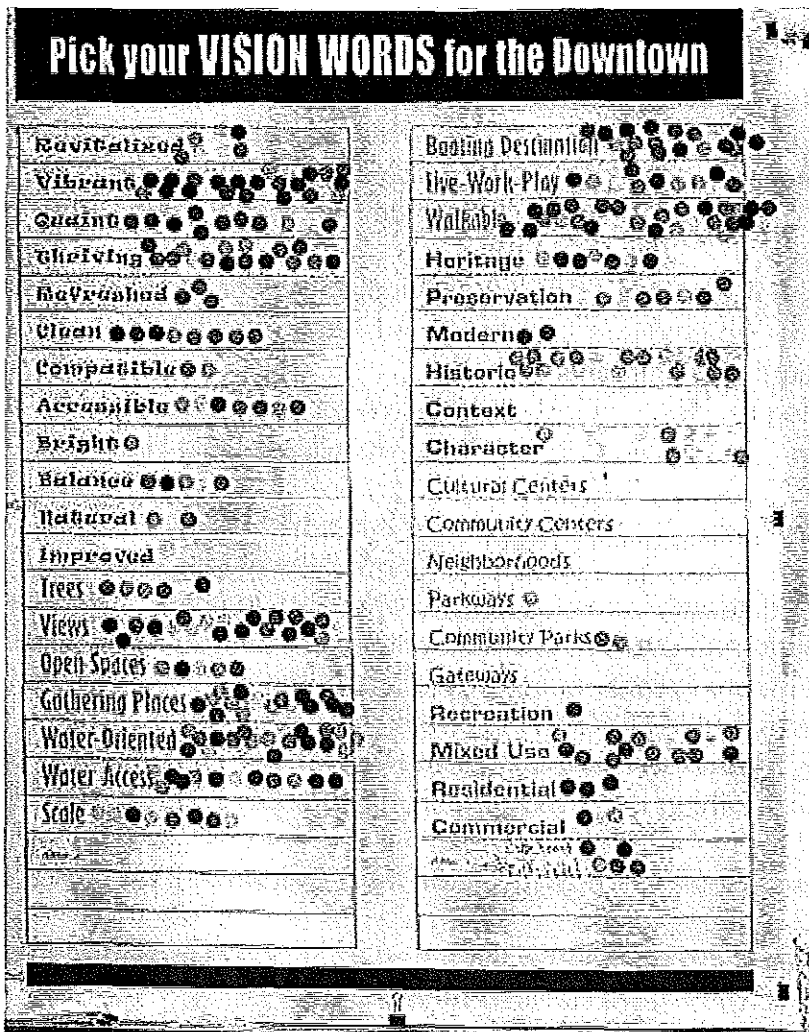 Pick your VISION WORDS for the Downtown
Revitalized
Vibrant
Quaint
Thriving
Refreshed
Clean
Compatible
Accessible
Bright
Balance
Natural
Improved
Trees
Views
Open Spaces
Gathering Places
Water-Oriented
Water Access
Scale
Boating Destination
Live-Work-Play
Walkable
Heritage
Preservation
Modern
Historic
Context
Character
Cultural Centers
Community Centers
Neighborhoods
Parkways
Community Parks
Gateways
Recreation
Mixed Use
Residential
Commercial